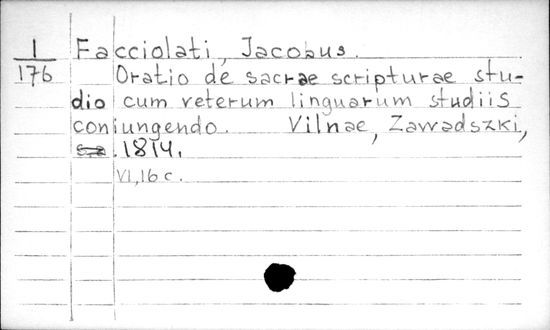 1 Facciolati, Jacobus.
176 Oratio de sacrae scripturae stu-
dio cum veterum linguarum studiis
coniungendo. Vilnae, Zawadszki,
1814.
VI,16 c.